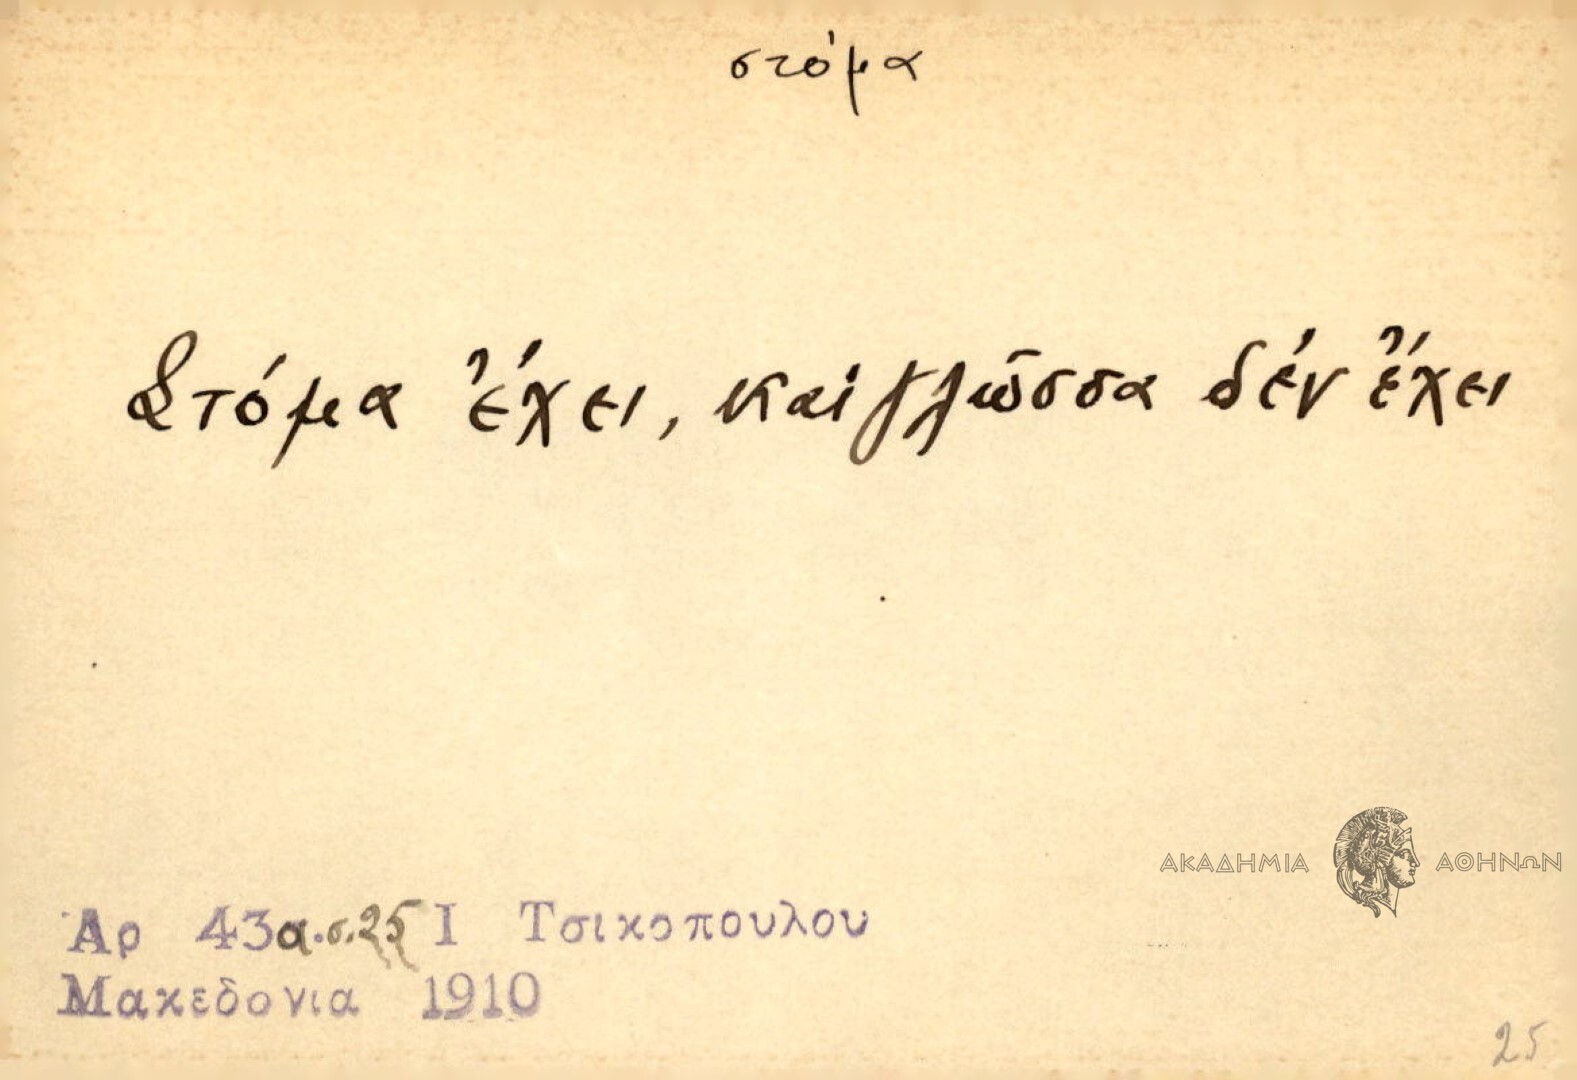 στόμα
Στόμα ἔχει, καί γλῶσσα δέν ἔχει
ΑΚΑΔΗΜΙΑ ΑΘΗΝΩΝ
Ἀρ 43α.σ.25 Ι Τσικοπουλου
Μακεδονια 1910
25